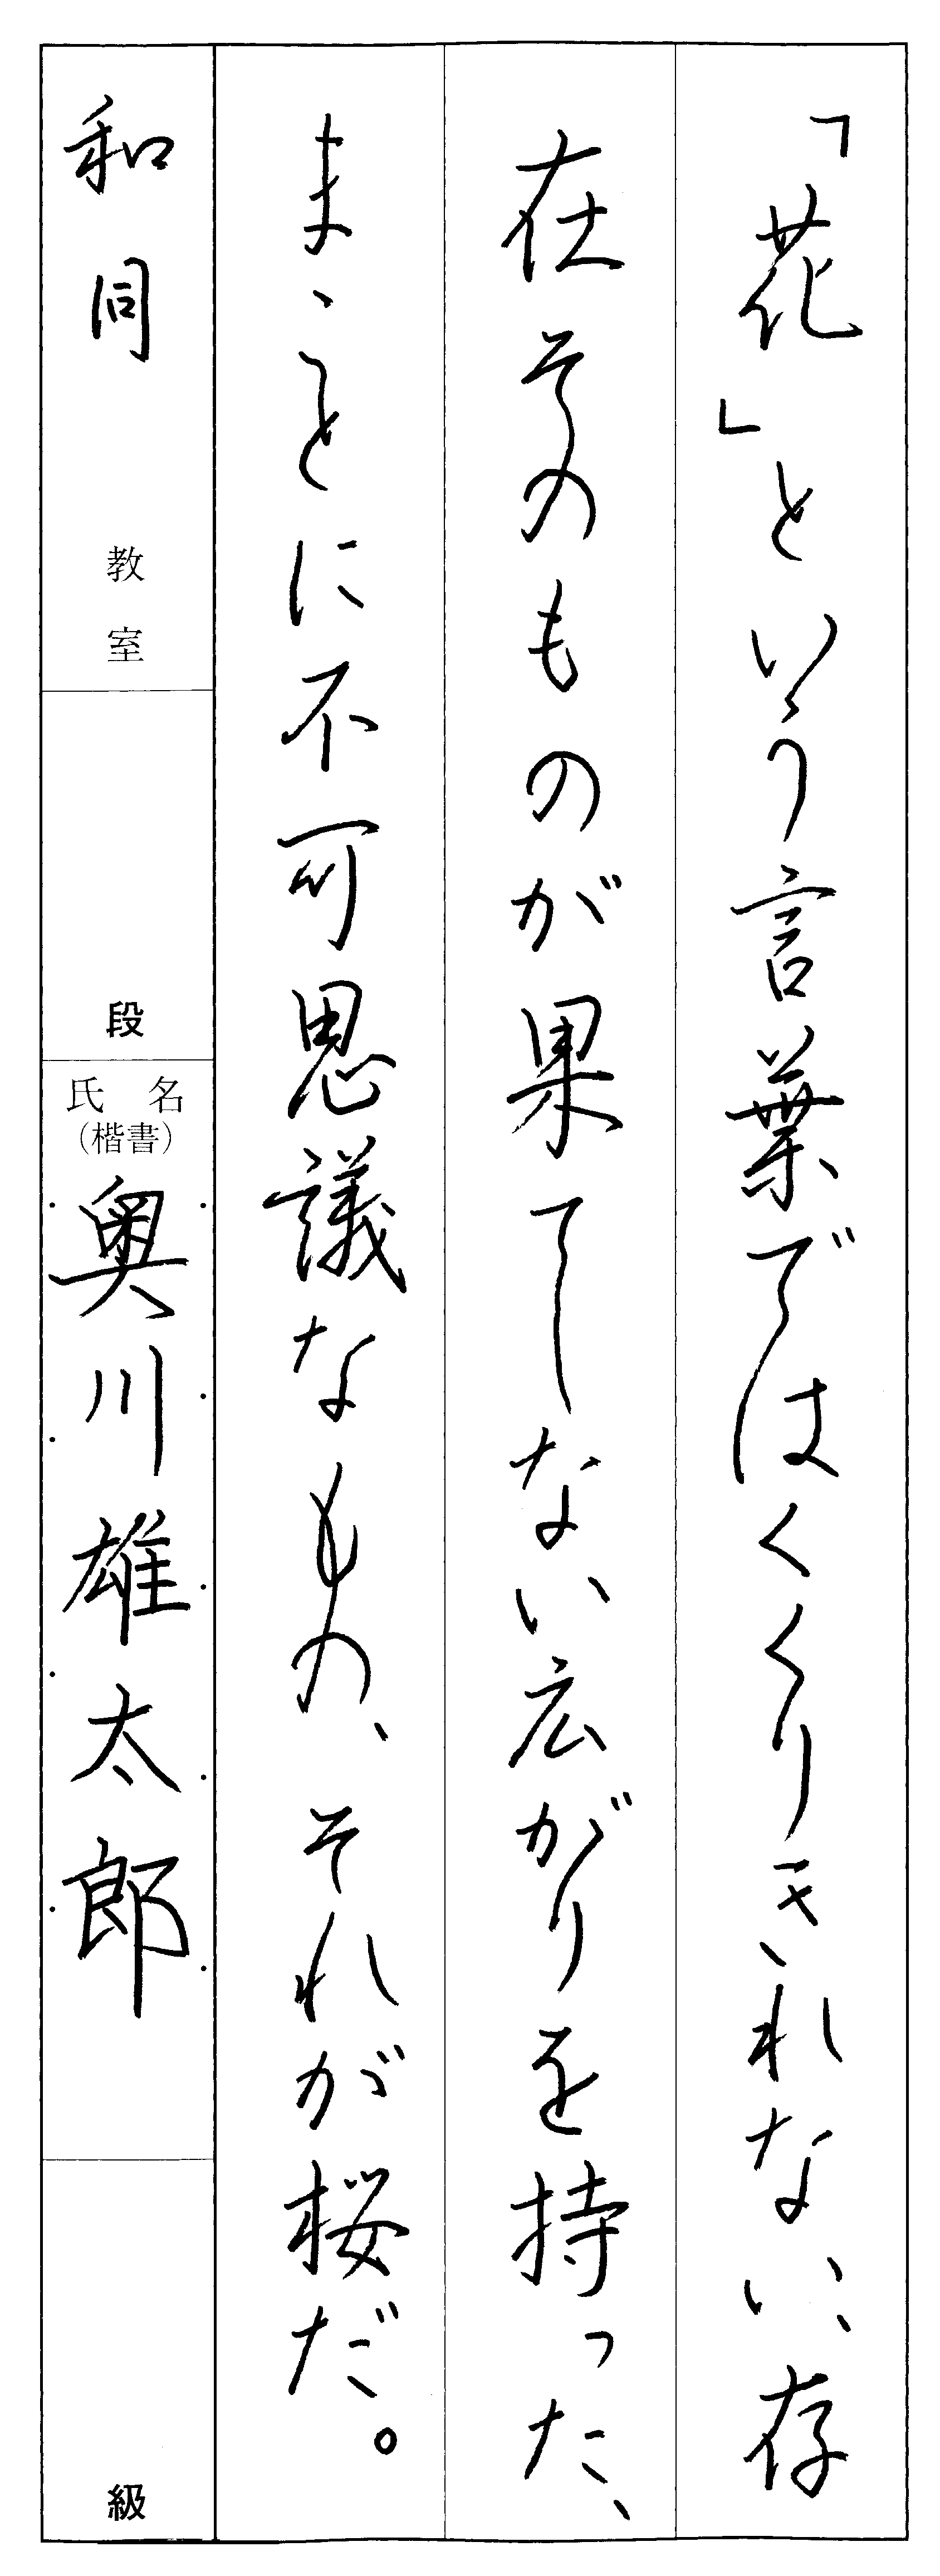 「花」という言葉ではくくりきれない、存
在そのものが果てしない広がりを持った、
まことに不可思議なもの、それが桜だ。
和同 教室
段
氏名
(楷書)
奥川雄太郎
級